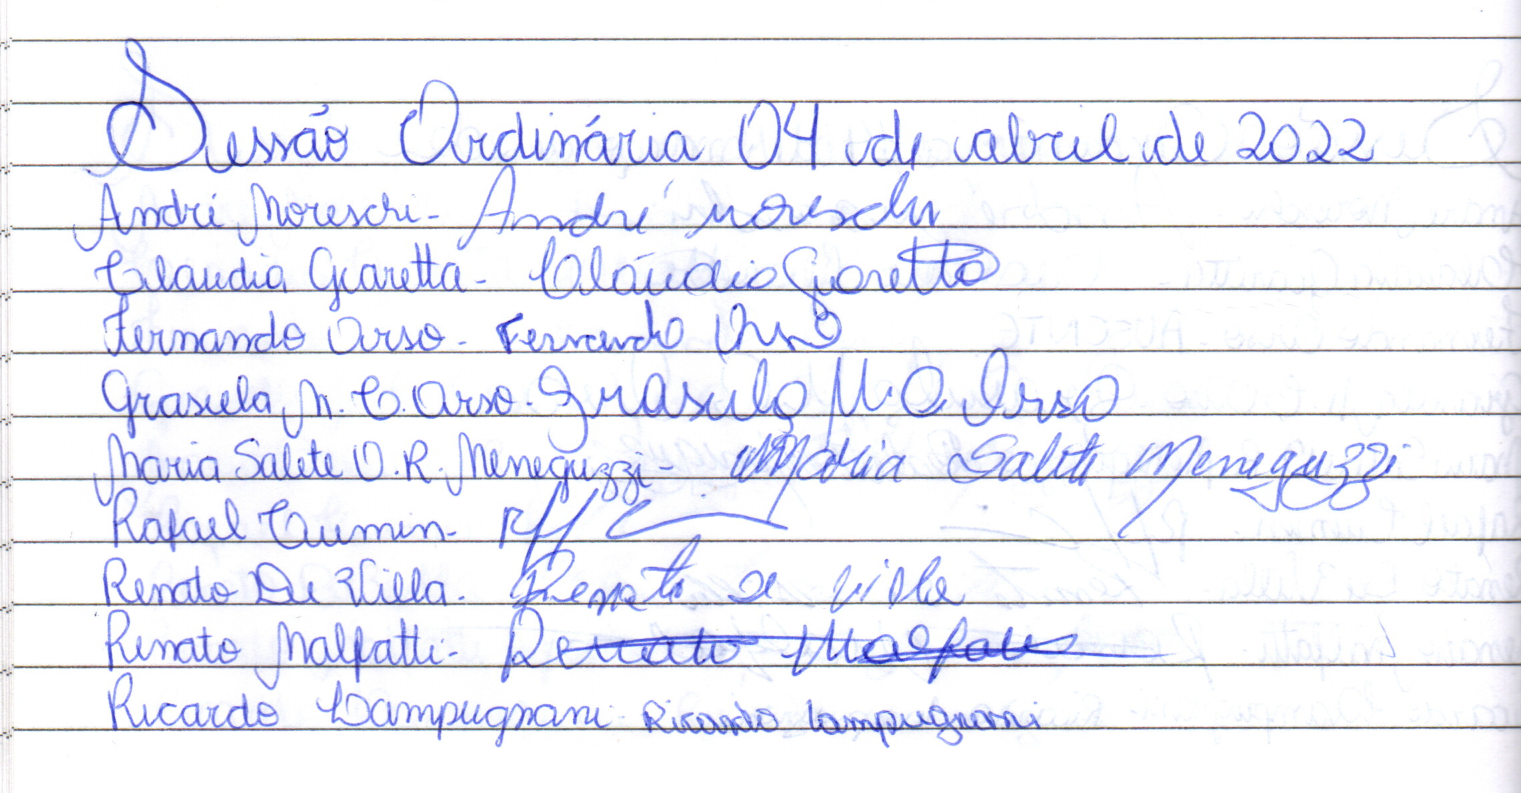 Sessão Ordinária 04 de abril de 2022
André Moreschi - André Moreschi
Claudia Giaretta - Claudia Giaretta
Fernando Orso - Fernando Orso
Grasiela M. C. Orso - Grasiela M. C. Orso
Maria Salete O. R. Meneguzzi - Maria Salete Meneguzzi
Rafael Cumin -
Renato De Villa - Renato De Villa
Renato Malfatti - Renato Malfatti
Ricardo Lampugnani - Ricardo Lampugnani